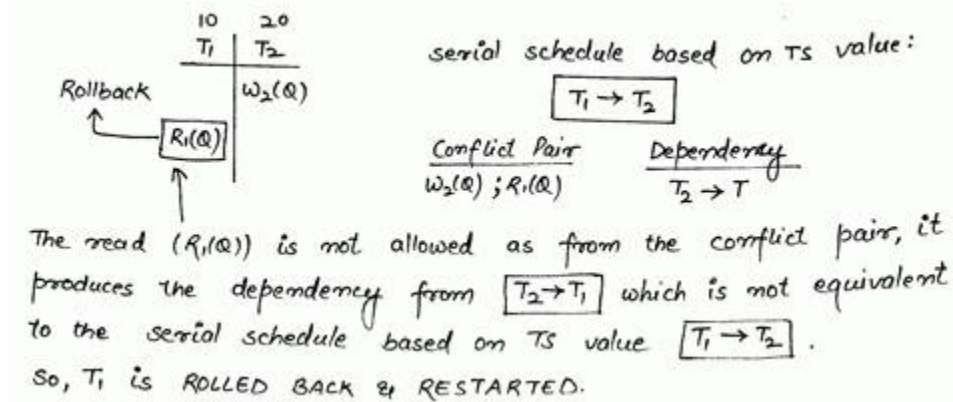 10 20
T₁ T₂
serial schedule based on TS value:
Rollback W₂(Q) T₁ → T₂
R₁(Q)
Conflict Pair Dependency
W₂(Q) ; R₁(Q) T₂ → T
The read (R₁(Q)) is not allowed as from the conflict pair, it
produces the dependency from T₂→T₁ which is not equivalent
to the serial schedule based on TS value T₁ → T₂ .
So, T₁ is ROLLED BACK & RESTARTED.